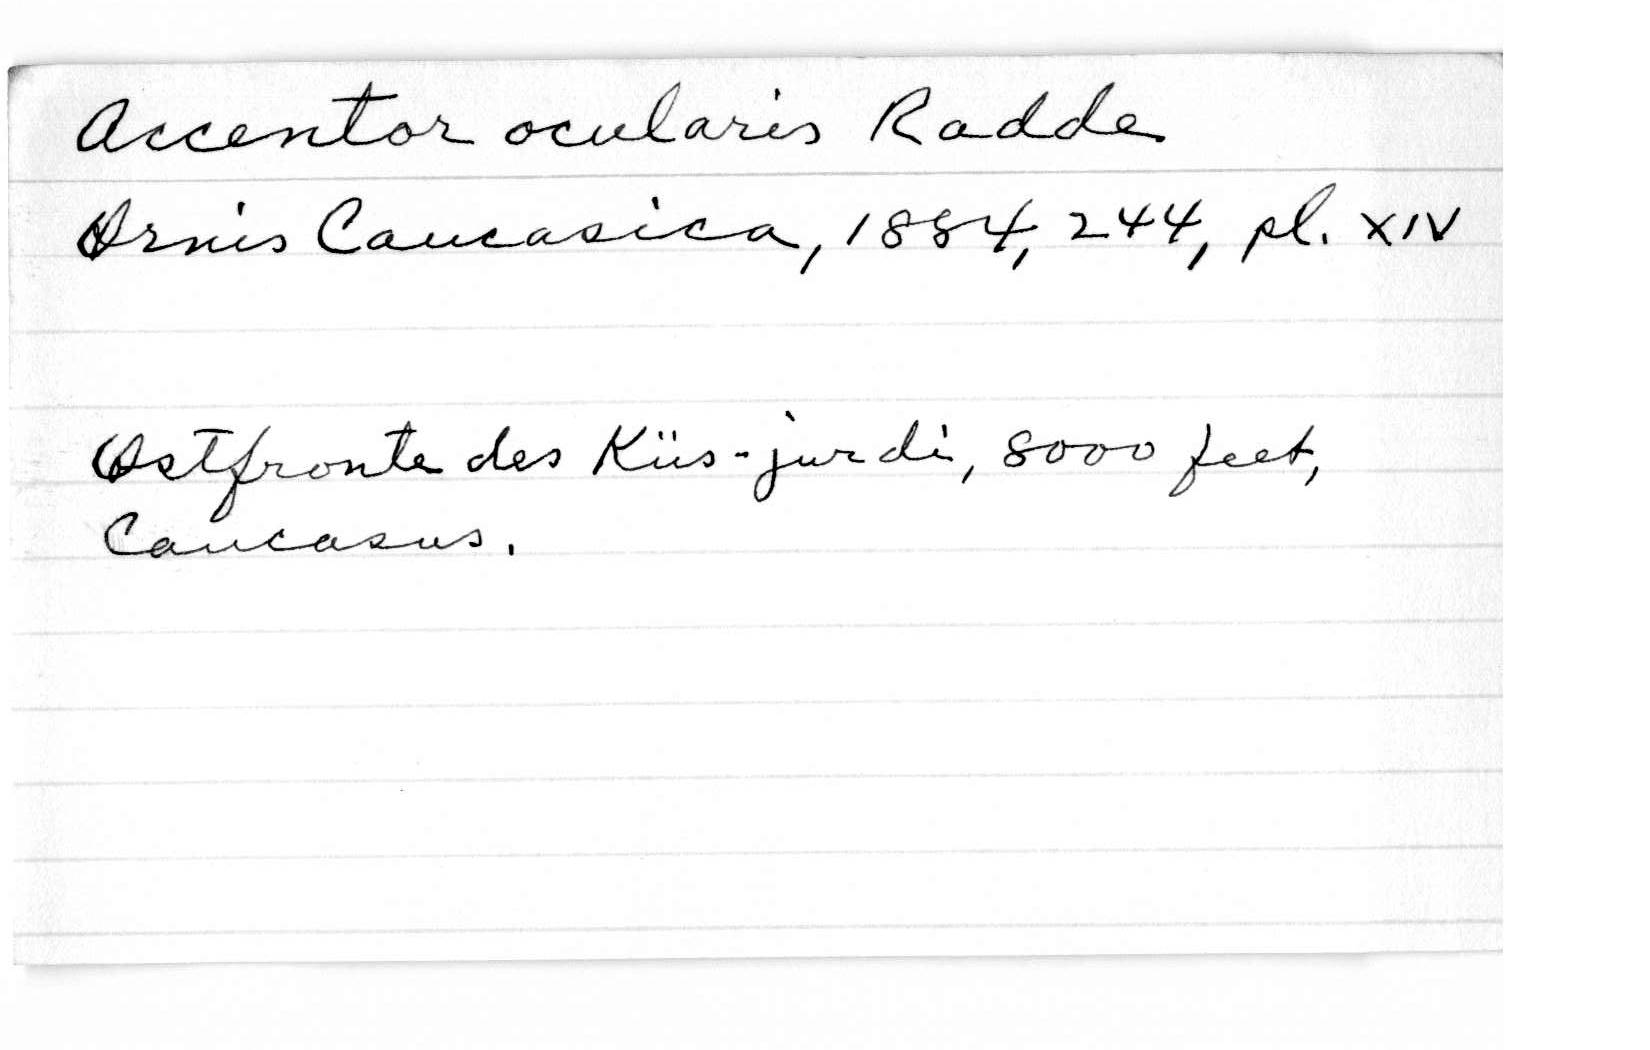 Accentor ocularis Radde
Ornis Caucasica, 1884, 244, pl. XIV
Ostfronte des Küs-jurdi, 8000 feet,
Caucasus.